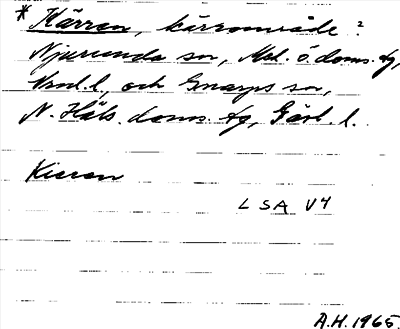 * Kärren, kärrområde?
Njurunda sn, Mek. ö. doms. tg,
Vnrl. l., och Gnarps sn,
N. Häls. doms. tg, Gävl. l.
Kieren
LSA V4
A.H. 1965.